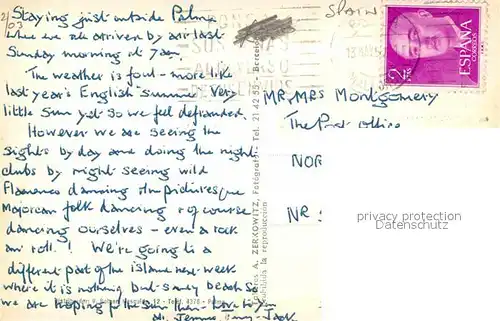 2/03
Staying just outside Palma
where we all arrived by air last
Sunday morning at 7am.
The weather is foul - more like
last year's English summer. Very
little sun yet so we feel defrauded.
However we are seeing the
sights by day and doing the night
clubs by night seeing wild
Flamenco dancing & the picturesque
Majorcan folk dancing & of course
dancing ourselves - even a rock
an' roll! We're going to a
different part of the island next week
where it is nothing but sandy beach so
we are hoping for the sun then - love to you
all. Jack
SPAIN
ESPAÑA
2
MR, MRS Montgomery
The Post Office
NOR
NR
privacy protection
Datenschutz
A. ZERKOWITZ, Fotógrafo - Tel. 21.42.45 - Barcelona
Prohibida la reproducción